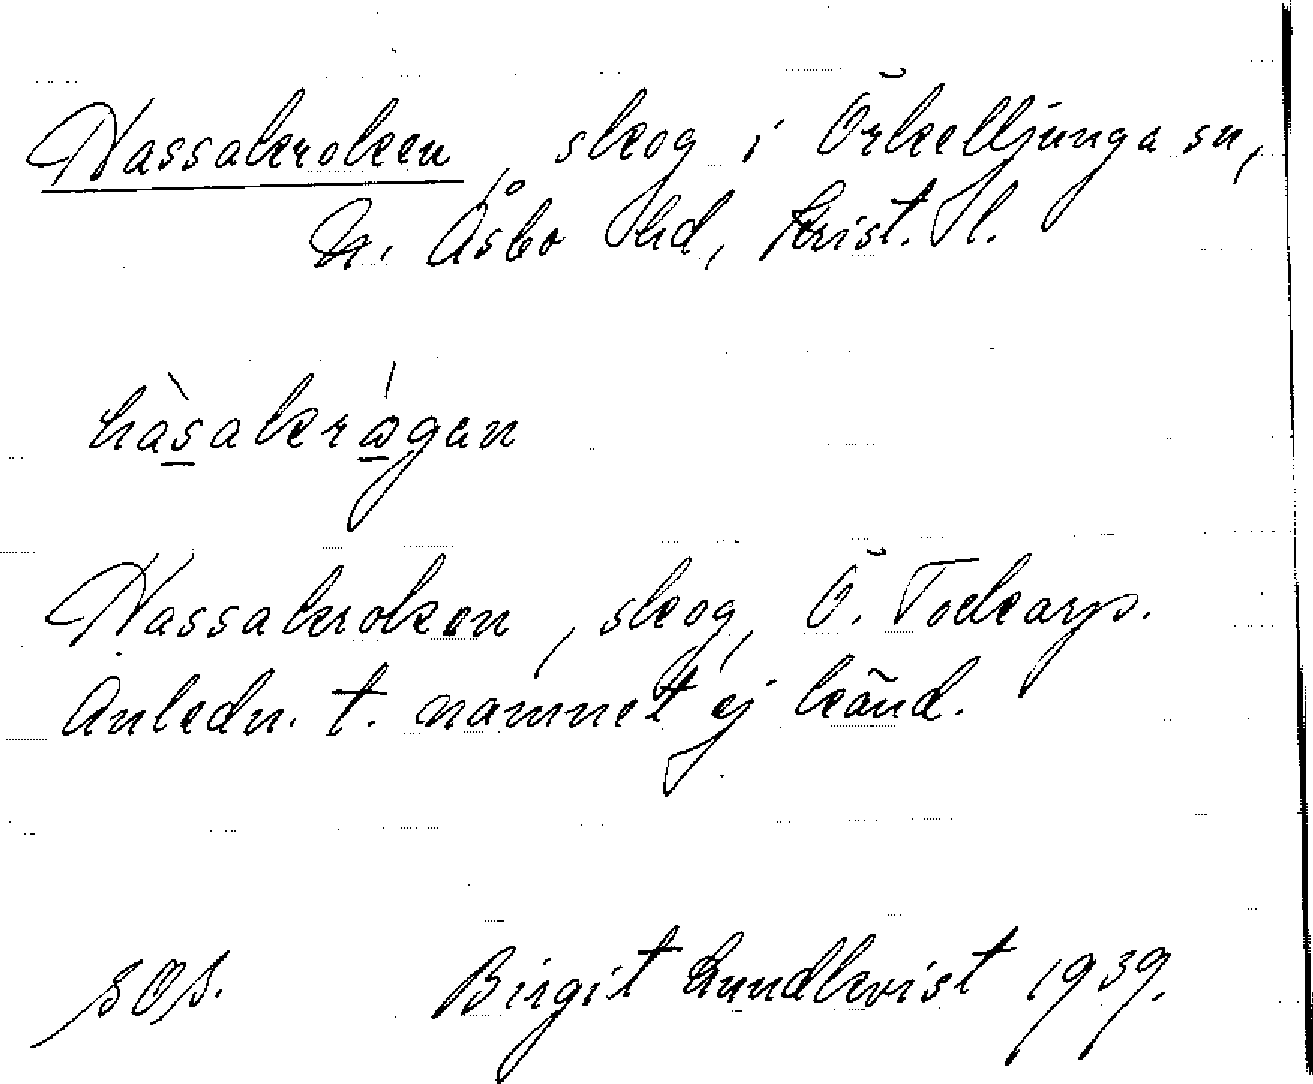 Hassakroken, skog i Örkelljunga sn,
N. Åsbo hd, Krist. l.
hàsakrågan
Hassakroken, skog, Ö. Tockarp.
Anledn. t. namnet ej känd.
SOS. Birgit Lundkvist 1939.